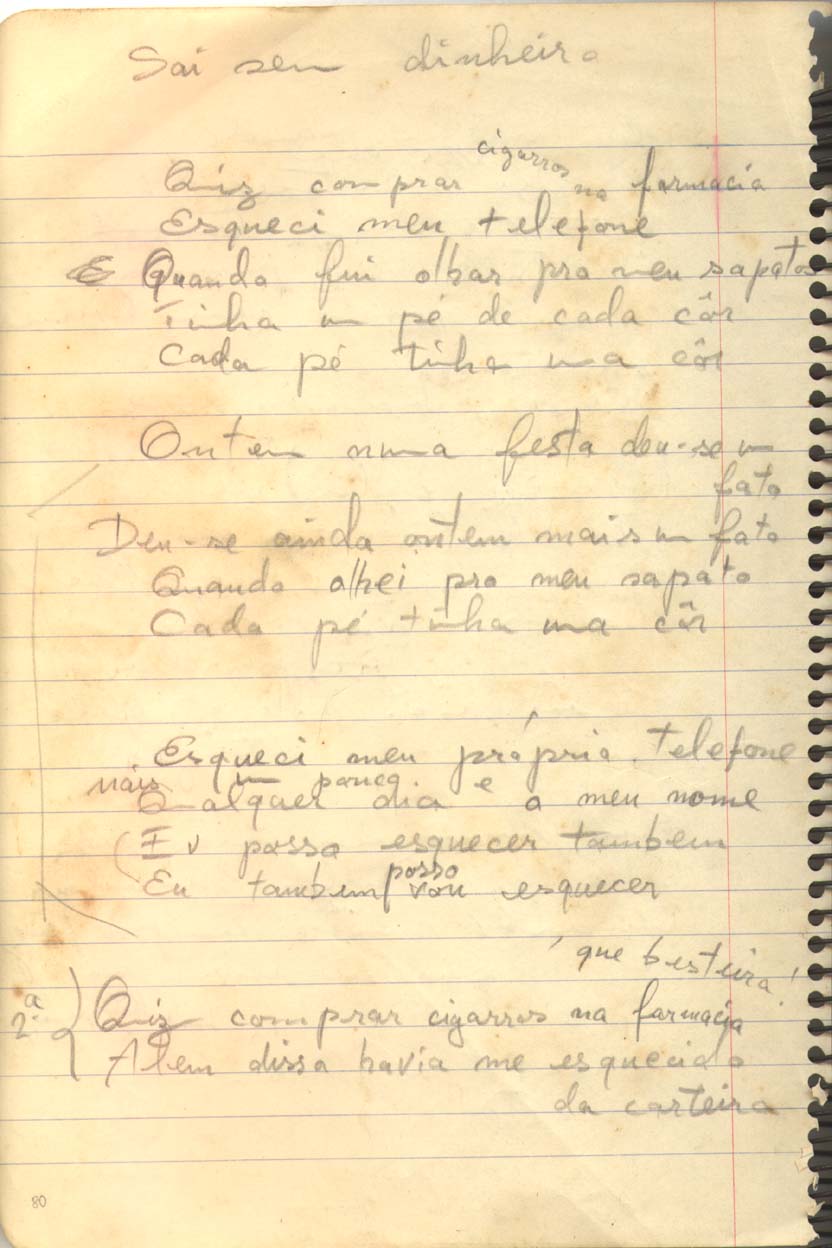 Sai sem dinheiro
cigarros
Quiz comprar na farmacia
Esqueci meu telefone
E Quando fui olhar pro meu sapato
Tinha um pé de cada côr
Cada pé tinha uma côr
Ontem numa festa deu-se um
fato
Deu-se ainda ontem mais um fato
Quando olhei pro meu sapato
Cada pé tinha uma côr
Esqueci meu próprio telefone
mais um pouco e
Qualquer dia o meu nome
Eu posso esquecer tambem
posso
Eu tambem vou esquecer
que besteira!
2ª Quiz comprar cigarros na farmacia
Alem disso havia me esquecido
da carteira
80